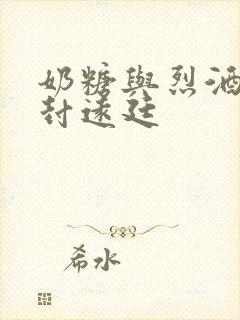 奶糖與烈酒
封遠廷
希水